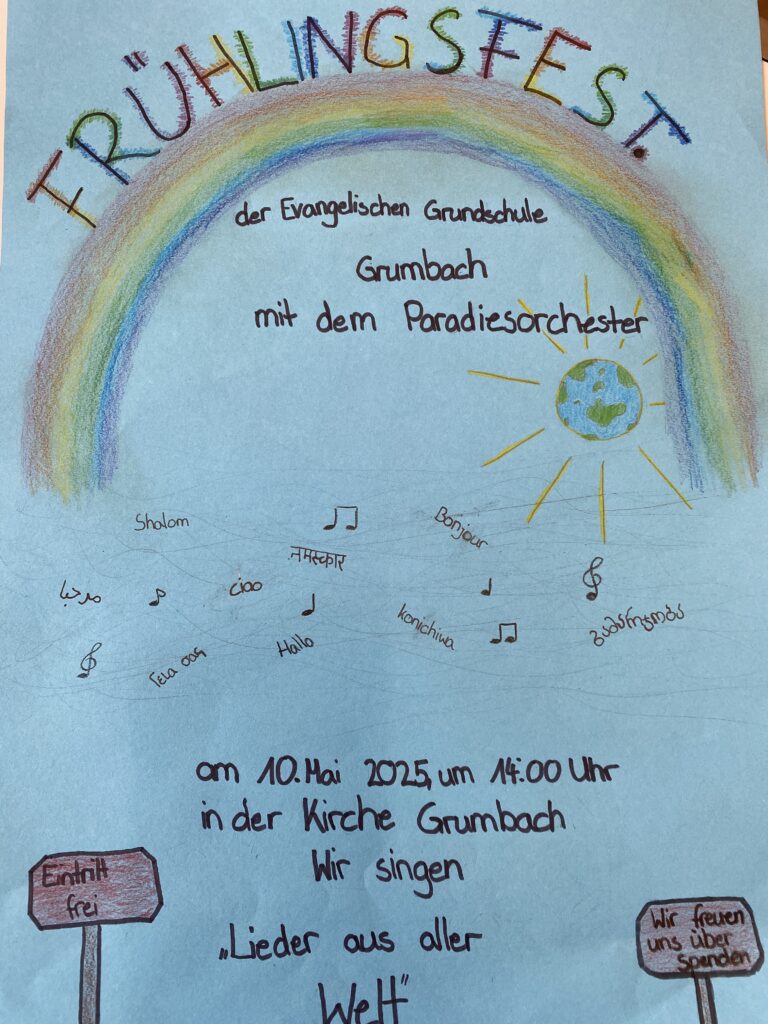 FRÜHLINGSFEST.
der Evangelischen Grundschule
Grumbach
mit dem Paradiesorchester
Shalom
Bonjour
नमस्कार
مرحبا
ciao
konichiwa
გამარჯობა
Hallo
Γεια σας
am 10. Mai 2025, um 14:00 Uhr
in der Kirche Grumbach
Wir singen
„Lieder aus aller
Welt"
Eintritt
frei
Wir freuen
uns über
spenden